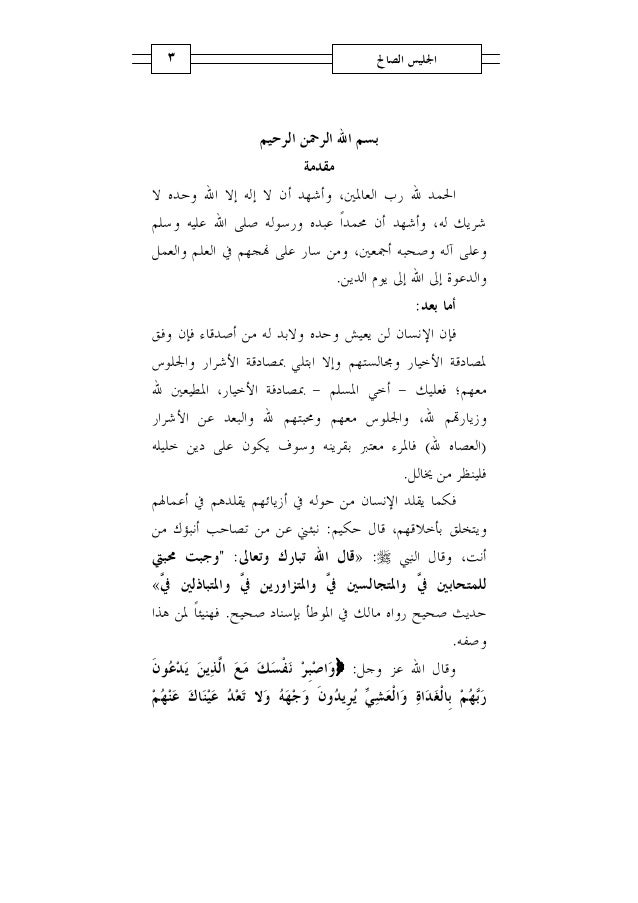 الجليس الصالح
٣
بسم الله الرحمن الرحيم
مقدمة
الحمد لله رب العالمين، وأشهد أن لا إله إلا الله وحده لا
شريك له، وأشهد أن محمداً عبده ورسوله صلى الله عليه وسلم
وعلى آله وصحبه أجمعين، ومن سار على نهجهم في العلم والعمل
والدعوة إلى الله إلى يوم الدين.
أما بعد:
فإن الإنسان لن يعيش وحده ولابد له من أصدقاء فإن وفق
لمصادقة الأخيار ومجالستهم وإلا ابتلي بمصادقة الأشرار والجلوس
معهم؛ فعليك – أخي المسلم – بمصادقة الأخيار، المطيعين لله
وزيارتهم لله، والجلوس معهم ومحبتهم لله والبعد عن الأشرار
(العصاه لله) فالمرء معتبر بقرينه وسوف يكون على دين خليله
فلينظر من يخالل.
فكما يقلد الإنسان من حوله في أزيائهم يقلدهم في أعمالهم
ويتخلق بأخلاقهم، قال حكيم: نبئني عن من تصاحب أنبؤك من
أنت، وقال النبي ﷺ: «قال الله تبارك وتعالى: "وجبت محبتي
للمتحابين فيَّ والمتجالسين فيَّ والمتزاورين فيَّ والمتباذلين فيَّ»
حديث صحيح رواه مالك في الموطأ بإسناد صحيح. فهنيئاً لمن هذا
وصفه.
وقال الله عز وجل: ﴿وَاصْبِرْ نَفْسَكَ مَعَ الَّذِينَ يَدْعُونَ
رَبَّهُمْ بِالْغَدَاةِ وَالْعَشِيِّ يُرِيدُونَ وَجْهَهُ وَلا تَعْدُ عَيْنَاكَ عَنْهُمْ